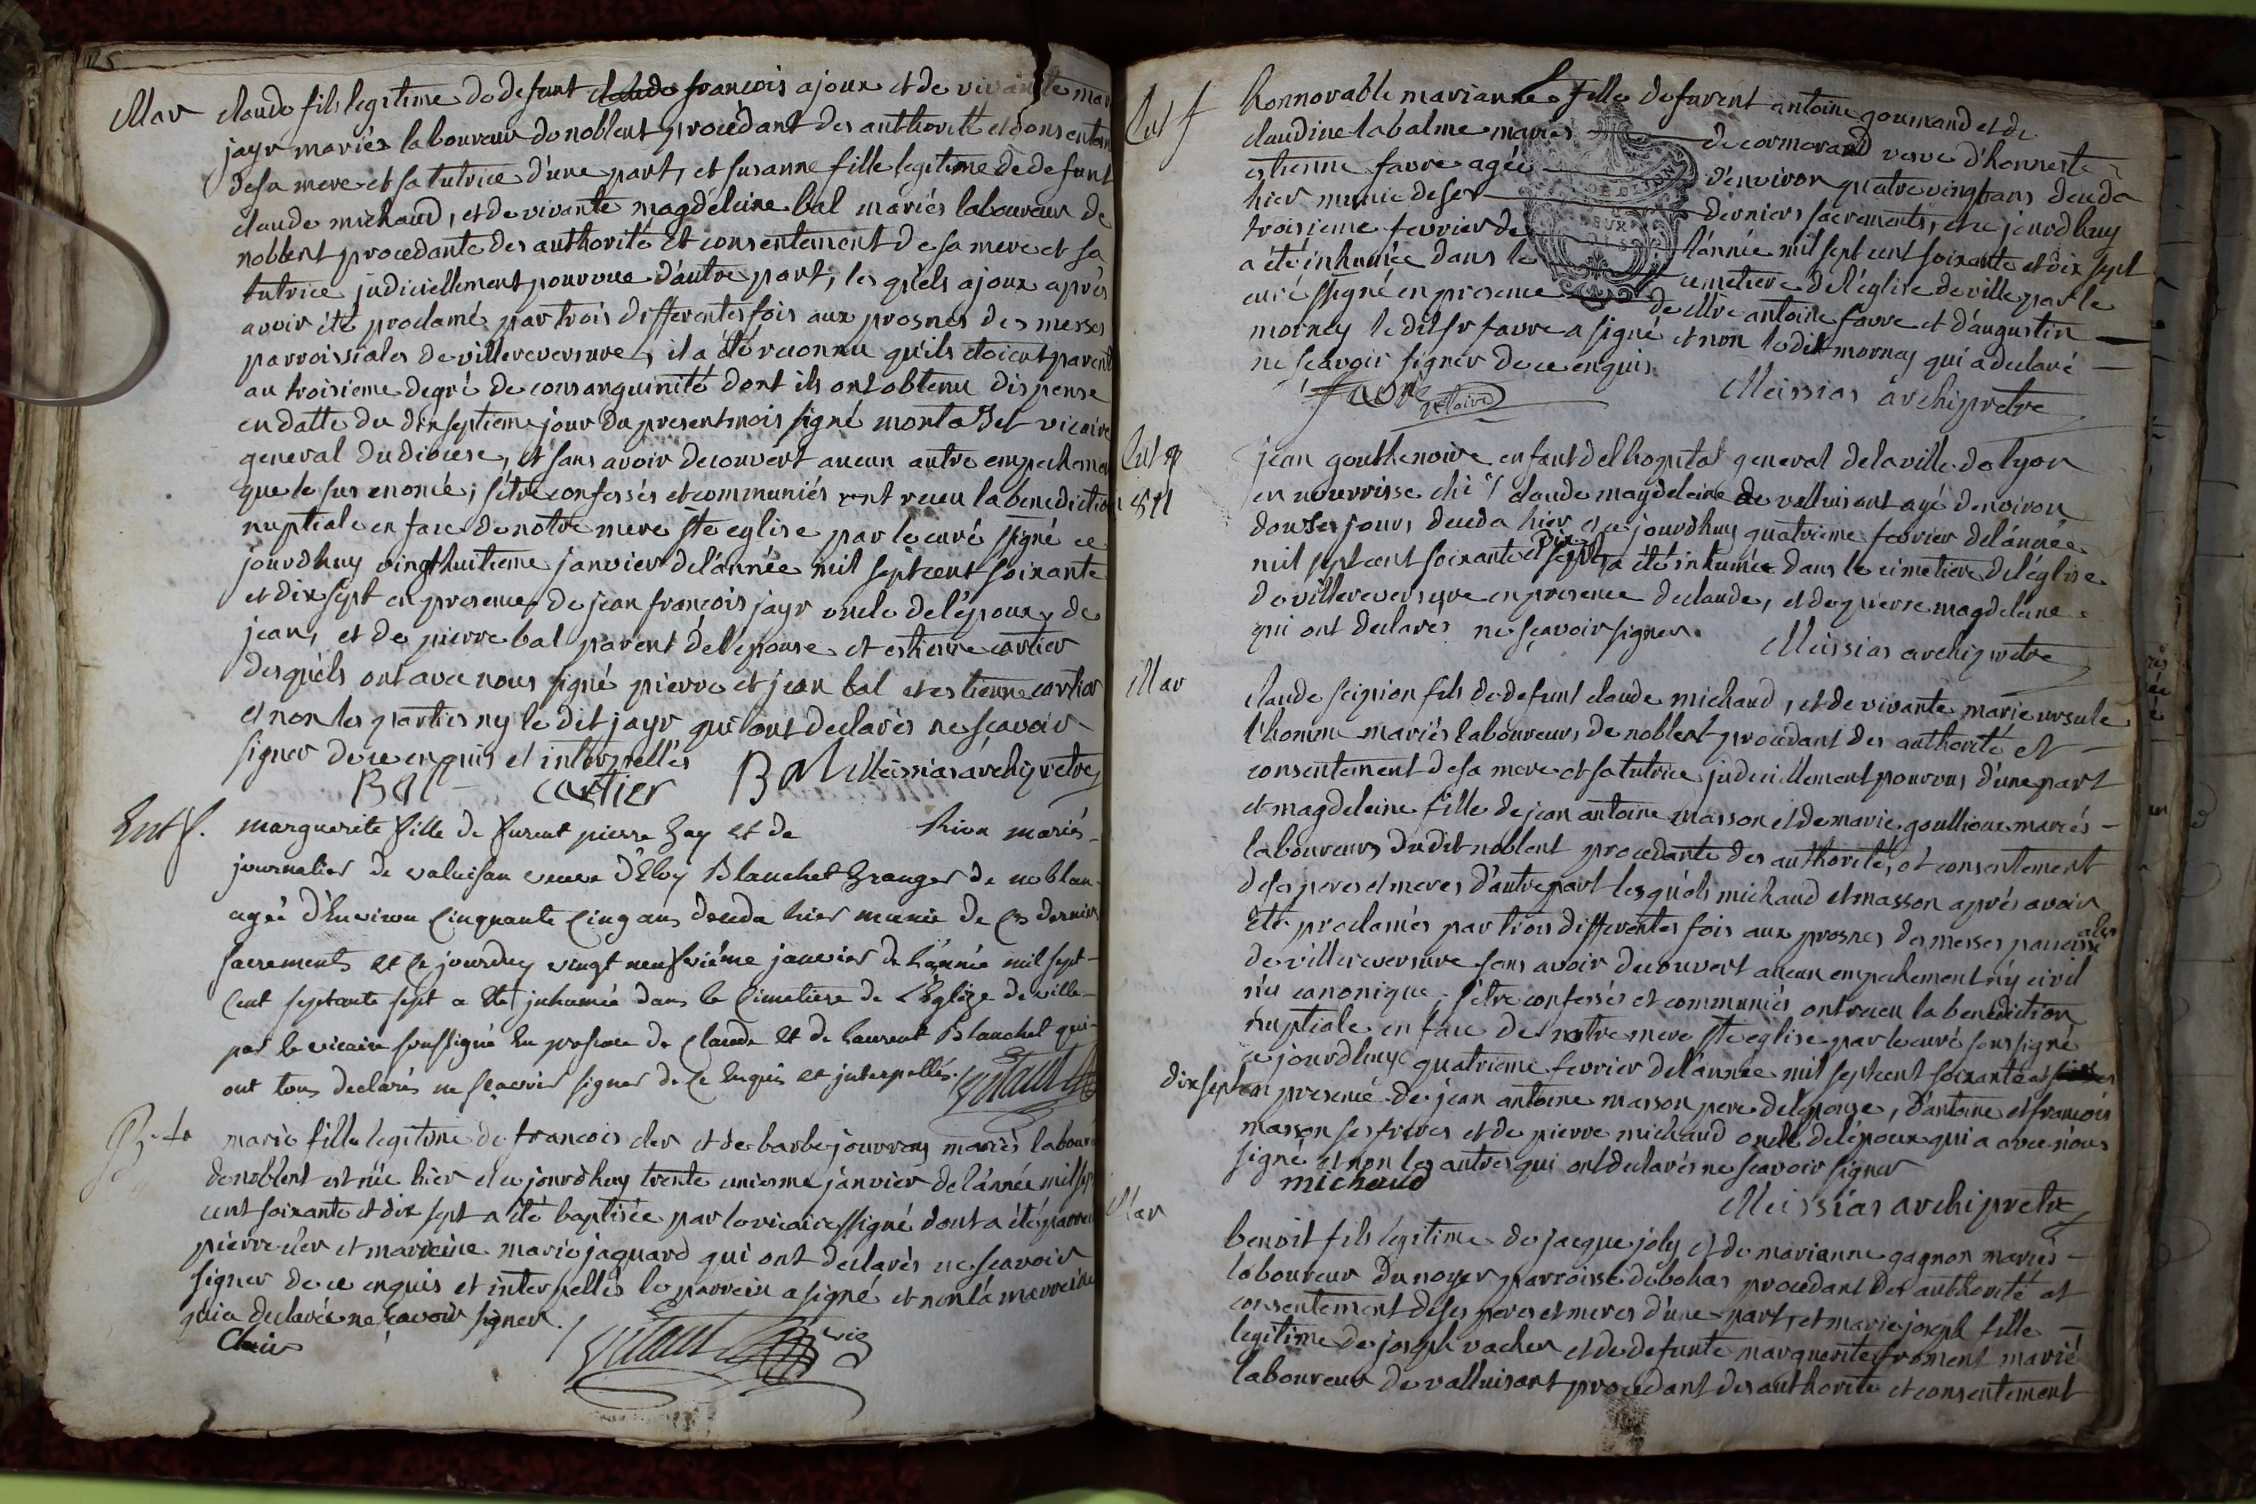 Mar
claude fils legitime de defunt claude françois ajoux et de vivante mar
jayr mariés laboureur de noblent procédant des authorité et consentem
de sa mere et sa tutrice d'une part, et susanne fille legitime de defunt
claude michaud, et de vivante magdéleine bal mariés laboureur de
noblent procedante des authorité et consentement de sa mere et sa
tutrice judiciellement pourvue d'autre part, les quels ajoux après
avoir été proclamé par trois differentes fois aux prosnes des messes
parroissiales de villereversure, il a été reconnu qu'ils etoient parent
au troisieme degré de consanguinité dont ils ont obtenu dispense
en datte du dix septieme jour du present mois signé montazet vicaire
general du diocese, et sans avoir decouvert aucun autre empechemen
que le sus enoncé; s'être confessés et communiés ont receu la benediction
nuptiale en face de notre mere ste eglise par le curé ssigné ce
jourdhuy vingthuitieme janvier de l'année mil sept cent soixante
et dix sept en presence de jean françois jayr oncle de l'époux, de
jean, et de pierre bal parent de l'épouse et estienne cartier
desquels ont avec nous signé pierre et jean bal et estienne cartier
et non les parties ny le dit jayr qui ont declarés ne scavoir
signer de ce enquis et interpellés
Bal cartier Bal Meissias archipretre
Ent f.
marguerite fille de furent pierre Gay et de hion mariés
journalier de valuisan veuve d'Eloy Blanchet Granger de noblan
agée d'Environ Cinquante Cinq ans deceda hier munie de Ces derniers
sacrements et Ce jourduy vingt neufvième janvier de L'année mil sept
Cent septante sept a été inhumée dans le Cimetiere de L'Eglize de ville
par le vicaire soussigné En presence de Claude et de Laurent Blanchet qui
ont tous declarés ne sçavoir signer de Ce Enquis et interpellés.
B. te
marie fille legitime de francois cler et de barbe jourvray mariés labour
de noblent est née hier et ce jourdhuy trente unieme janvier de l'année mil sep
cent soixante et dix sept a été baptisée par le vicaire ssigné dont a été parrei
pierre cler et marreine marie jaquard qui ont declarés ne scavoir
signer de ce enquis et interpellés le parrein a signé et non la marreine
qui a declarée ne sçavoir signer.
Clair
vic
Ent f
honnorable marianne fille de furent antoine gourmand et de
claudine labalme mariés de cormorand veuve d'honneste
estienne favre agée d'environ quatre vingt ans deceda
hier munie de ser derniers sacrements, et ce jourdhuy
troisieme fevrier de l'année mil sept cent soixante et dix sept
a été inhumée dans le cimetiere de l'église de ville par le
curé ssigné en presence de Mre antoine favre et d'augustin
mornay le dit sr favre a signé et non le dit mornay qui a declaré
ne scavoir signer de ce enquis
favre notaire Meissias archipretre
Ent
jean gouthenoire enfant del hopital general de la ville de lyon
en nourrisse ché claude magdeleine de valluisant agé denviron
douse jours deceda hier et ce jourdhuy quatrieme fevrier de l'année
mil sept cent soixante et dix sept a été inhumée dans le cimetiere de l'église
de villereversure en presence de claude, et de pierre magdelene
qui ont declarés ne sçavoir signer. Meissias archipretre
Mar
claude scipion fils de defunt claude michaud, et de vivante marie ursule
l'homme mariés laboureurs de noblent procedant des authorité et
consentement de sa mere et sa tutrice judiciellement pourvus d'une part
et magdeleine fille de jean antoine masson et de marie goullioux mariés
laboureurs du dit noblent procedante des authorité, et consentement
de ses peres et meres d'autre part les quels michaud et masson après avoir
été proclamés par trois differentes fois aux prosnes des messes parroissiales
de villereversure sans avoir decouvert aucun empechement n'y civil
n'y canonique, s'être confessés et communiés ont receu la benediction
nuptiale en face de notre mere ste eglise par le curé soussigné
ce jourdhuy quatrieme fevrier de l'année mil sept cent soixante et
dix sept en presence de jean antoine masson pere de l'epouse, d'antoine et françois
masson ses freres et de pierre michaud oncle de l'époux qui a avec nous
signé et non les autres qui ont declarés ne scavoir signer
michaud
Meissias archipretre
Mar
benoit fils legitime de jacque joly et de marianne gagnon mariés
laboureur du noyer parroisse de bohas procedant des authorité et
consentement de ses peres et meres d'une part, et marie joseph fille
legitime de joseph vacher et de defunte marguerite froment marié
laboureur de valluisant procedant des authorité et consentement